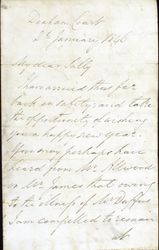 Denham Court
2d January 1846
My dear Sally
I have arrived thus far
back in safety, and take
the opportunity of wishing
you a happy new year.
You may perhaps have
heard from Mr.
or Mr. James that owing
to the illness of Mr.
I am compelled to remain
at